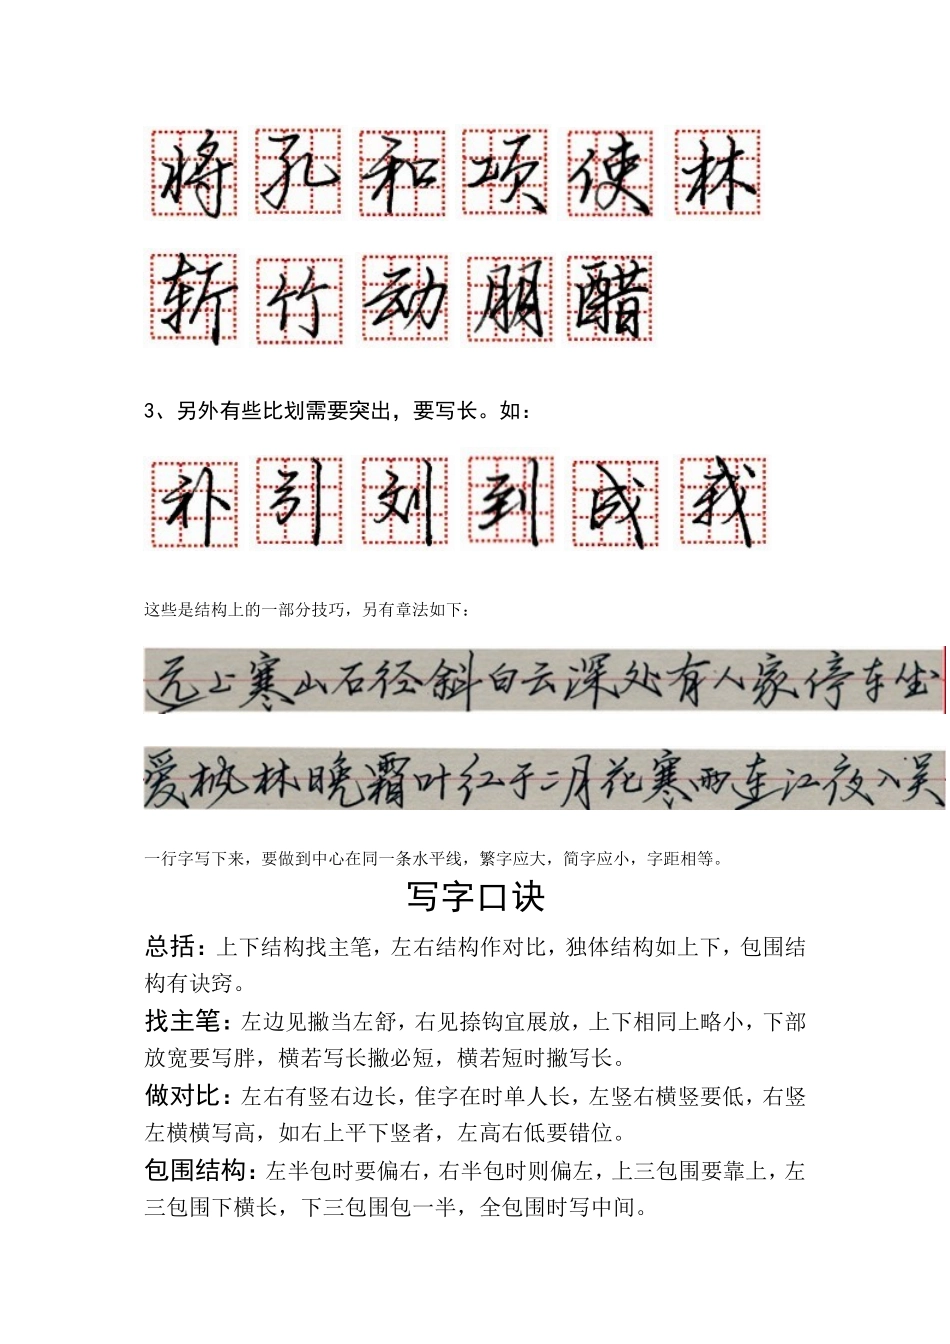 将 孔 和 项 使 林
斩 竹 动 朋 醋
3、另外有些比划需要突出，要写长。如：
补 引 刘 到 成 我
这些是结构上的一部分技巧，另有章法如下：
远上寒山石径斜白云深处有人家停车坐
爱枫林晚霜叶红于二月花寒雨连江夜入吴
一行字写下来，要做到中心在同一条水平线，繁字应大，简字应小，字距相等。
写字口诀
总括：上下结构找主笔，左右结构作对比，独体结构如上下，包围结
构有诀窍。
找主笔：左边见撇当左舒，右见捺钩宜展放，上下相同上略小，下部
放宽要写胖，横若写长撇必短，横若短时撇写长。
做对比：左右有竖右边长，隹字在时单人长，左竖右横竖要低，右竖
左横横写高，如右上平下竖者，左高右低要错位。
包围结构：左半包时要偏右，右半包时则偏左，上三包围要靠上，左
三包围下横长，下三包围包一半，全包围时写中间。